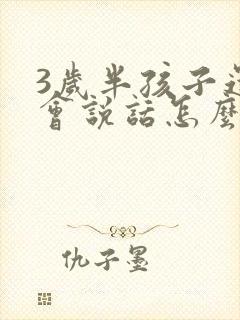 3歲半孩子
會說話怎麼
仇子墨